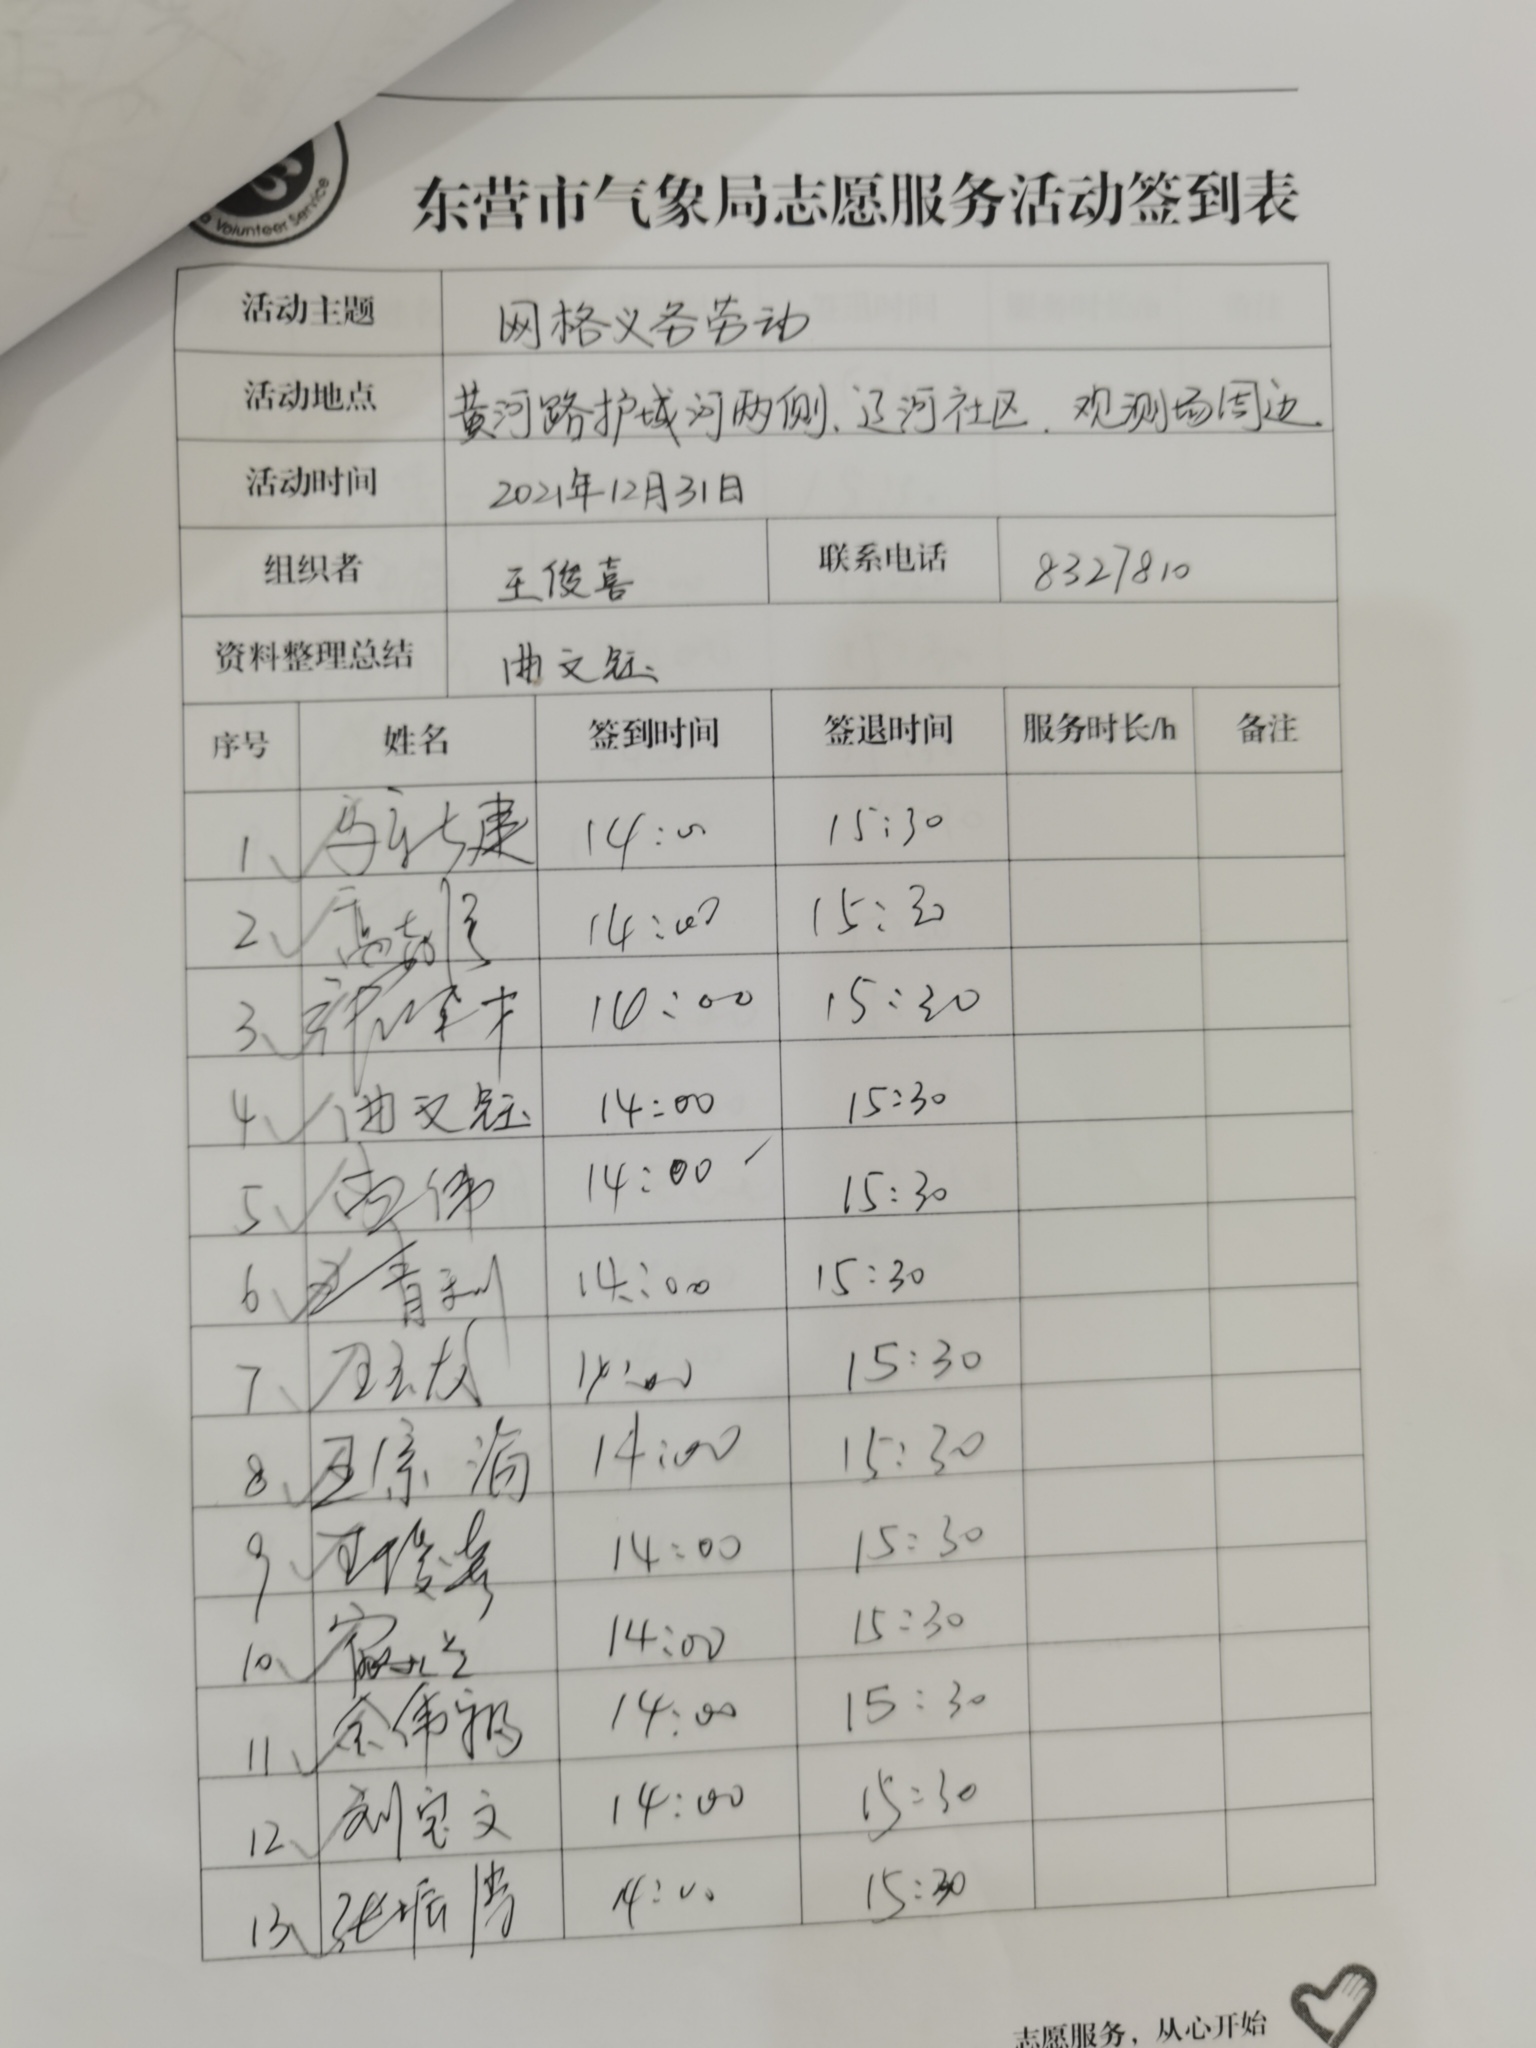 Volunteer Service
东营市气象局志愿服务活动签到表
活动主题 网格义务劳动
活动地点 黄河路护城河两侧、辽河社区、观测场周边
活动时间 2021年12月31日
组织者 王俊喜 联系电话 8327810
资料整理总结 曲文钰
序号 姓名 签到时间 签退时间 服务时长/h 备注
1、 14:00 15:30
2、 14:00 15:30
3、 14:00 15:30
4、 曲文钰 14:00 15:30
5、 14:00 15:30
6、 14:00 15:30
7、 14:00 15:30
8、 14:00 15:30
9、 王俊喜 14:00 15:30
10、 14:00 15:30
11、 14:00 15:30
12、 刘宝文 14:00 15:30
13、 14:00 15:30
志愿服务，从心开始